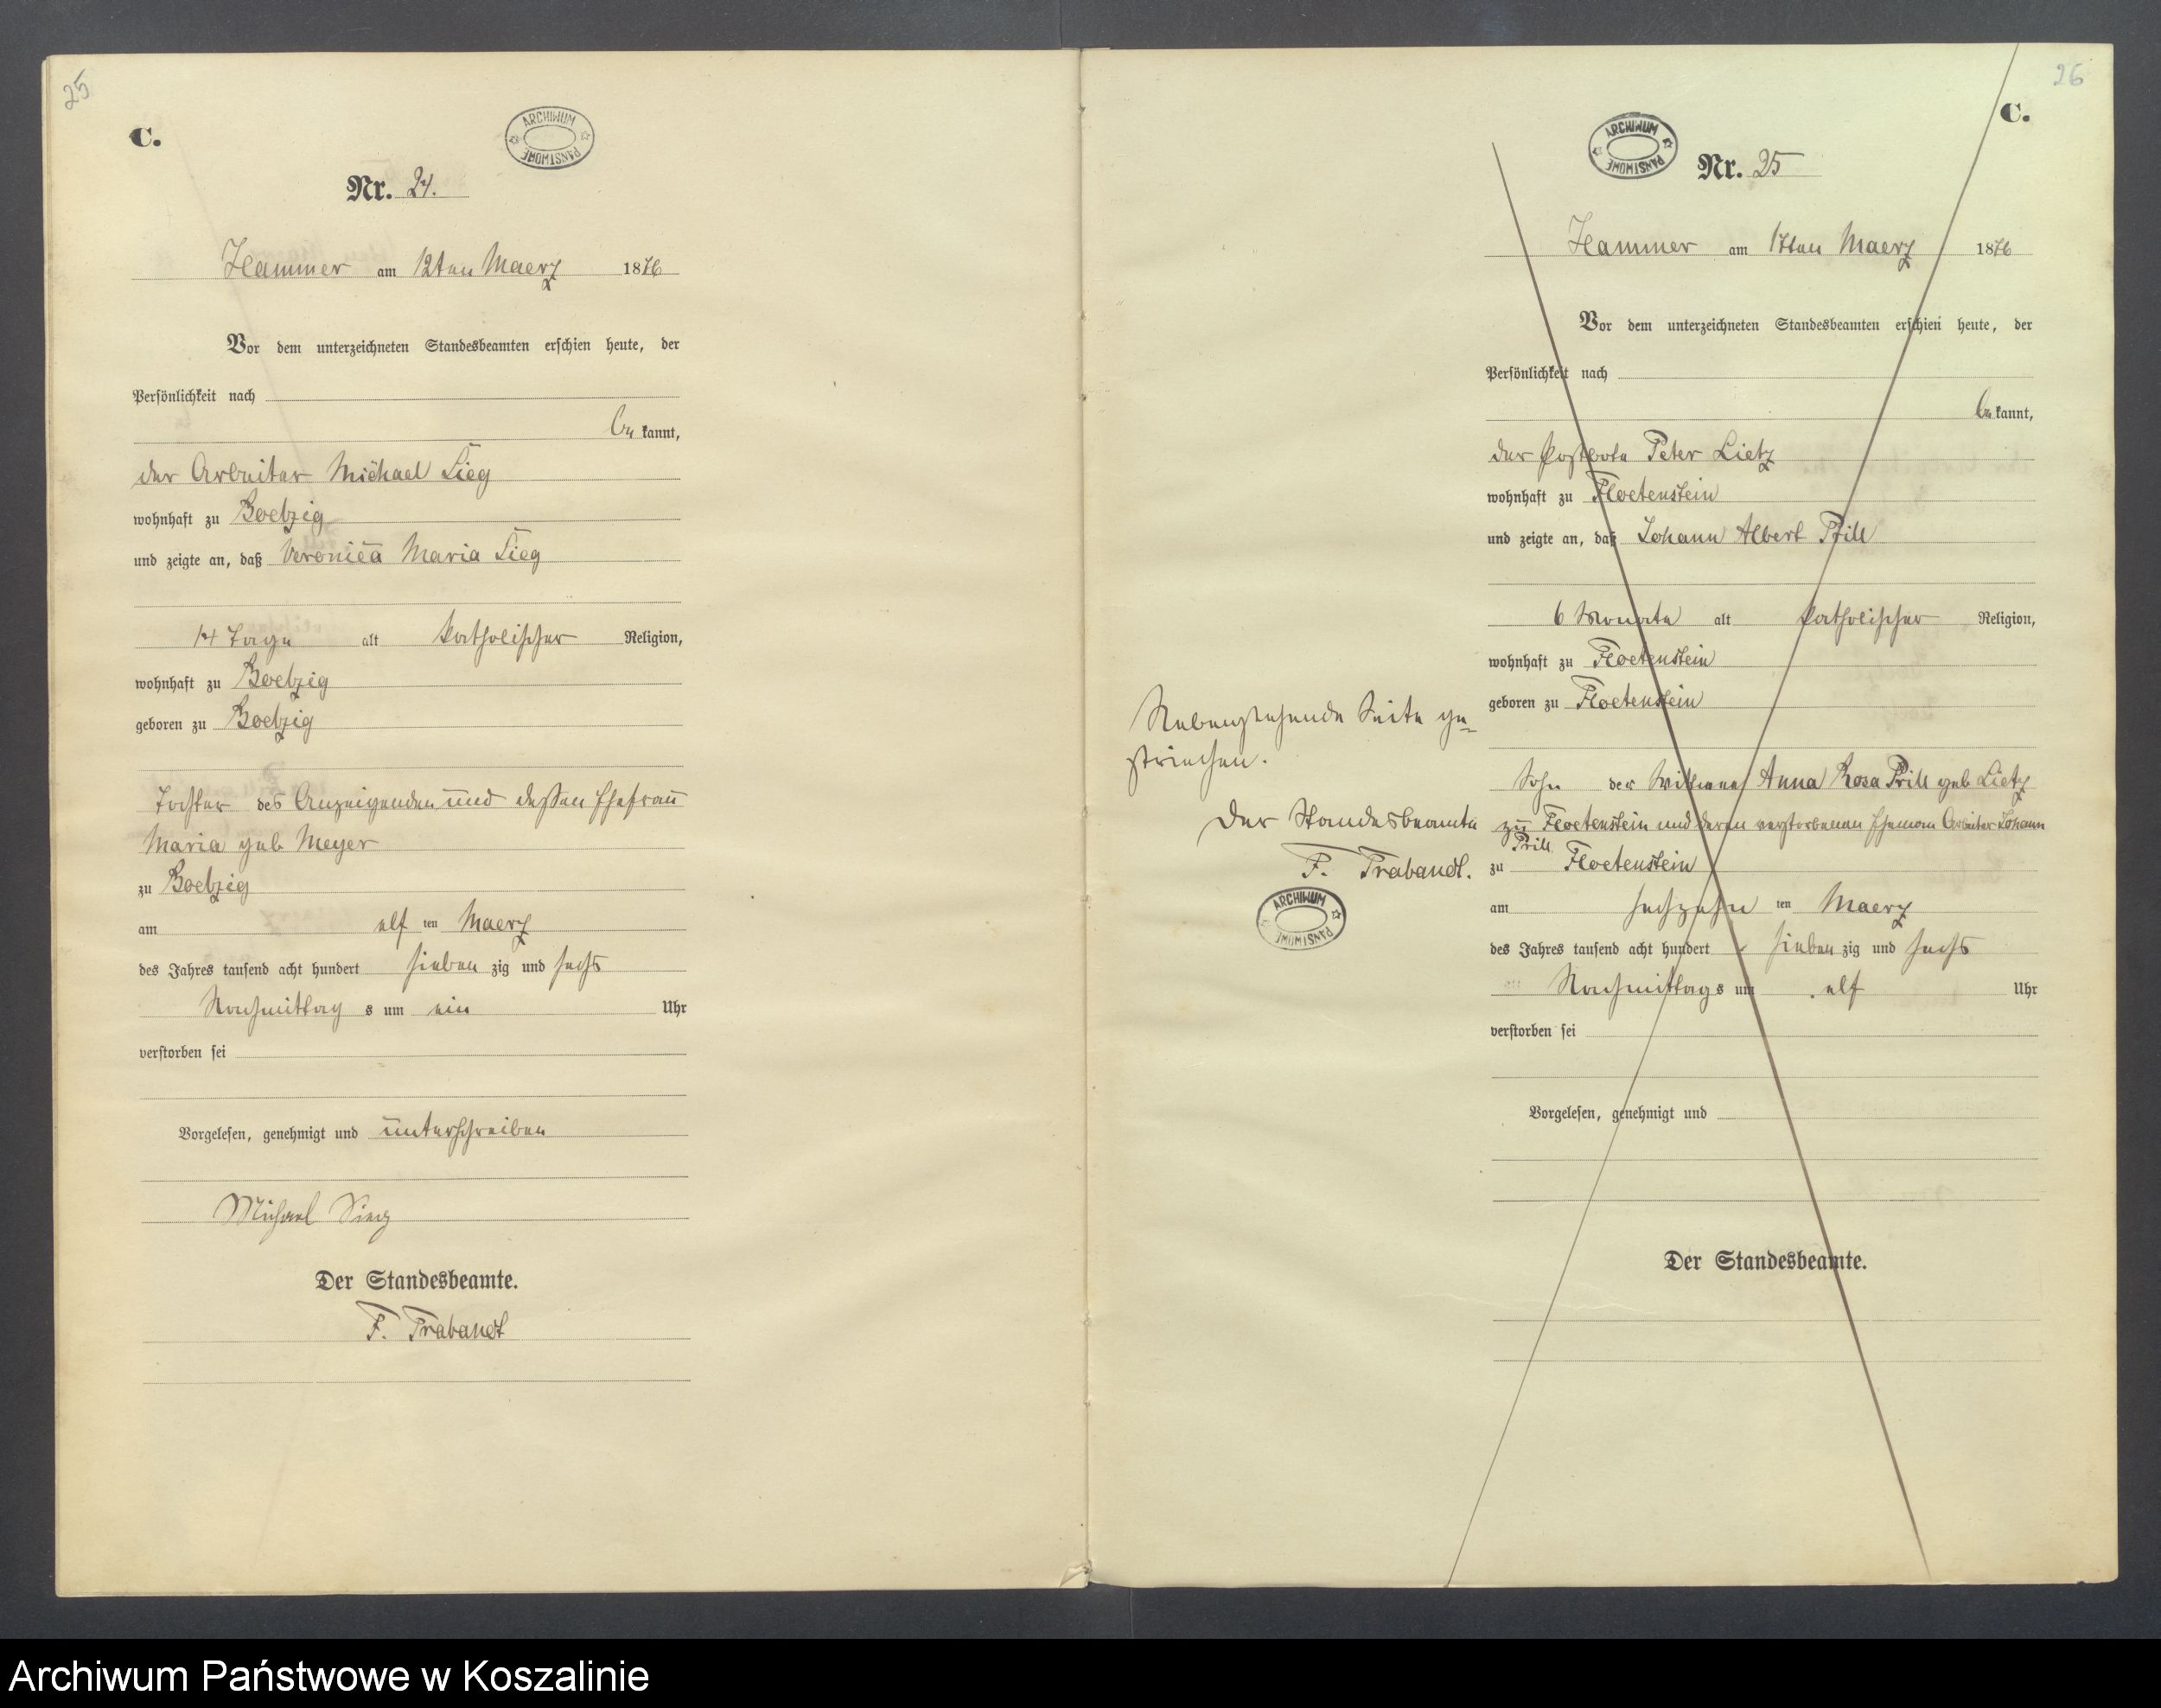 25
C.
ARCHIWUM PAŃSTWOWE
Nr. 24.
Hammer am 12ten Maerz 1876
Vor dem unterzeichneten Standesbeamten erschien heute, der
Persönlichkeit nach
be kannt,
der Arbeiter Michael Sieg
wohnhaft zu Boelzig
und zeigte an, daß Veronica Maria Sieg
14 Tage alt katholischer Religion,
wohnhaft zu Boelzig
geboren zu Boelzig
Tochter des Anzeigenden und dessen Ehefrau
Maria geb Meyer
zu Boelzig
am elf ten Maerz
des Jahres tausend acht hundert sieben zig und sechs
Nachmittag s um ein Uhr
verstorben sei
Vorgelesen, genehmigt und unterschreiben
Michael Sieg
Der Standesbeamte.
F. Trabandt
26
C.
ARCHIWUM PAŃSTWOWE
Nr. 25
Hammer am 17ten Maerz 1876
Vor dem unterzeichneten Standesbeamten erschien heute, der
Persönlichkeit nach
be kannt,
der Postbote Peter Lietz
wohnhaft zu Floetenstein
und zeigte an, daß Johann Albert Prill
6 Monate alt katholischer Religion,
wohnhaft zu Floetenstein
geboren zu Floetenstein
Sohn der Wittwe Anna Rosa Prill geb Lietz
zu Floetenstein und deren verstorbenen Ehemann Arbeiter Johann
Prill
zu Floetenstein
am sechzehn ten Maerz
des Jahres tausend acht hundert sieben zig und sechs
Nachmittag s um elf Uhr
verstorben sei
Vorgelesen, genehmigt und
Der Standesbeamte.
Nebenstehende Seite ge=
strichen.
Der Standesbeamte
F. Trabandt.
ARCHIWUM PAŃSTWOWE
Archiwum Państwowe w Koszalinie